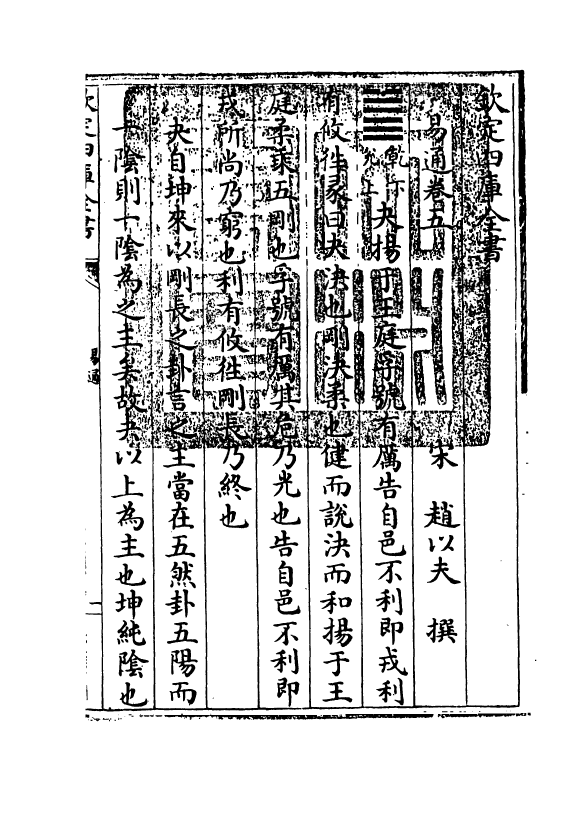 欽定四庫全書
易通卷五
宋 趙以夫 撰
乾下
兌上
夬揚于王庭孚號有厲告自邑不利即戎利
有攸往彖曰夬決也剛決柔也健而說決而和揚于王
庭柔乘五剛也孚號有厲其危乃光也告自邑不利即
戎所尚乃窮也利有攸往剛長乃終也
夬自坤來以剛長之卦言之主當在五然卦五陽而
一陰則一陰為之主矣故夬以上為主也坤純陰也
欽定四庫全書
易通
一